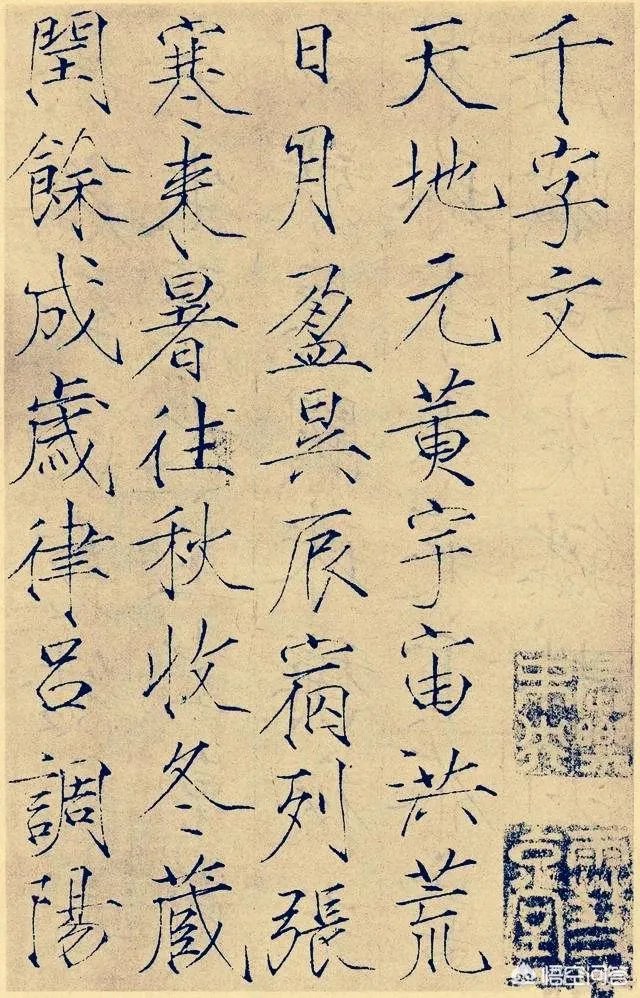 千字文
天地元黄宇宙洪荒
日月盈昃辰宿列張
寒来暑往秋收冬蔵
閏餘成歳律呂調陽
悟空问答